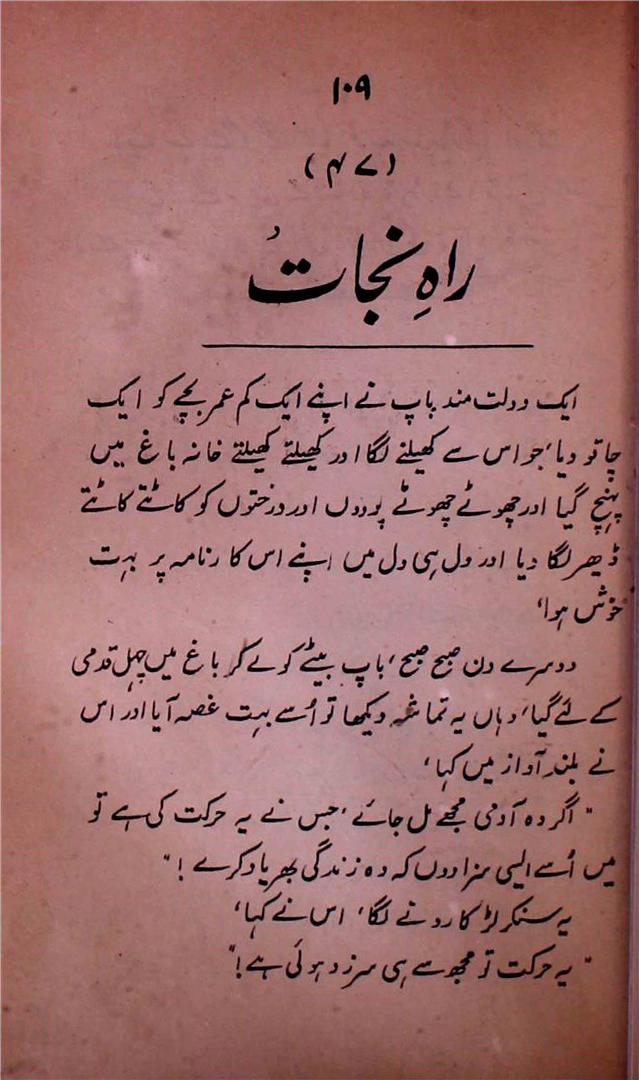 ۱۰۹
(۴۷)
راہِ نجات
ایک دولت مند باپ نے اپنے ایک کم عمر بچے کو ایک
چاقو دیا، جو اس سے کھیلنے لگا اور کھیلتے کھیلتے خانہ باغ میں
پہنچ گیا اور چھوٹے چھوٹے پودوں اور درختوں کو کاٹتے کاٹتے
ڈھیر لگا دیا اور دل ہی دل میں اپنے اس کارنامہ پر بہت
خوش ہوا،
دوسرے دن صبح صبح، باپ بیٹے کو لے کر باغ میں چہل قدمی
کے لئے گیا، وہاں یہ تماشہ دیکھا تو اُسے بہت غصہ آیا اور اس
نے بلند آواز میں کہا،
" اگر وہ آدمی مجھے مل جائے، جس نے یہ حرکت کی ہے تو
میں اُسے ایسی سزا دوں کہ وہ زندگی بھر یاد کرے !"
یہ سنکر لڑکا رونے لگا، اس نے کہا،
" یہ حرکت تو مجھ سے ہی سرزد ہوئی ہے !"